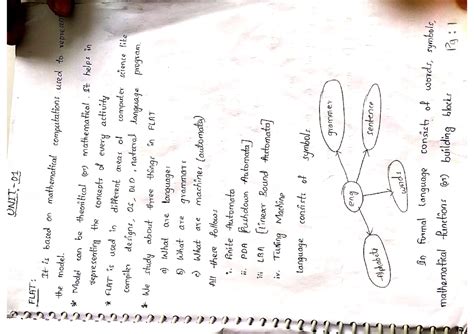 UNIT-01
FLAT:
It is based on mathematical computations used to represent
the model.
* Model can be theoritical (or) mathematical It helps in
representing the concepts of every activity
* FLAT is used in different areas of computer science like
compiler designs, OS, DLD, natural language program.
* We study about three things in FLAT
a) What are languages
b) What are grammars
c) What are machines (automata)
All these follows
i. Finite Automata
ii. PDA [Pushdown Automata]
iii. LBA [Linear Bound Automata]
iv. Turing Machine
language consists of symbols
grammer
sentence
eng
words
alphabets
In formal language consists of words, symbols,
mathematical functions (or) building blocks
Pg: 1